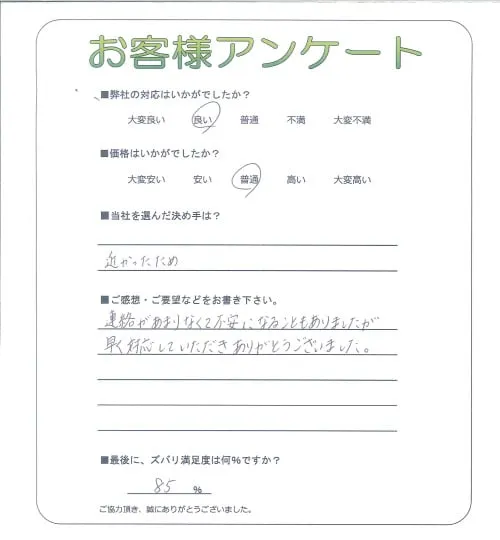 お客様アンケート
■弊社の対応はいかがでしたか？
大変良い 良い 普通 不満 大変不満
■価格はいかがでしたか？
大変安い 安い 普通 高い 大変高い
■当社を選んだ決め手は？
近かったため
■ご感想・ご要望などをお書き下さい。
連絡があまりなくて不安になることもありましたが
早く対応していただきありがとうございました。
■最後に、ズバリ満足度は何%ですか？
85 %
ご協力頂き、誠にありがとうございました。